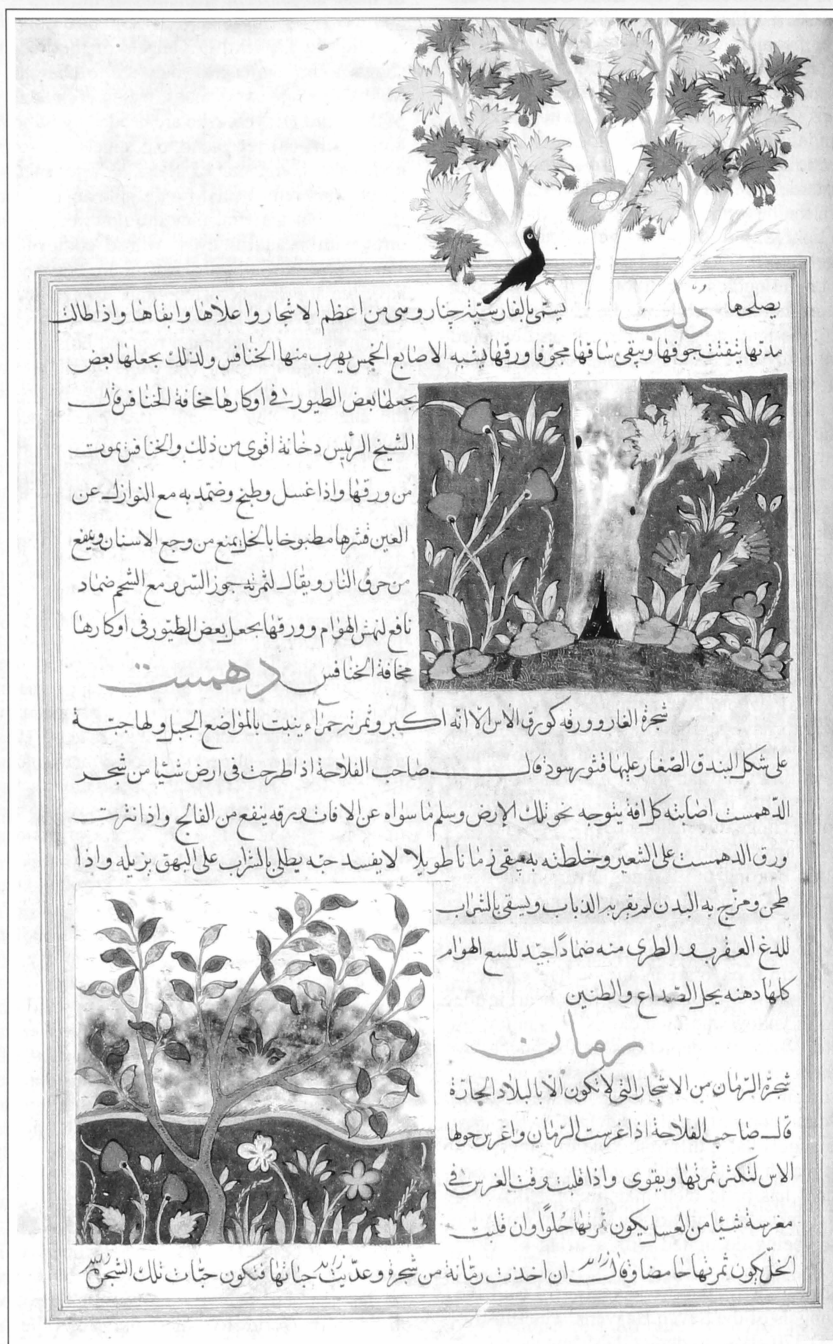 يصلحها دُلب يسمّى بالفارسيّة چنار وهى من اعظم الاشجار واعلاها وابقاها واذا طالت
مدتها يتفتت جوفها ويبقى ساقها مجوّفا ورقها يشبه الاصابع الخمس يهرب منها الخنافس ولذلك يجعلها بعض
يجعلها بعض الطيور فى اوكارها مخافة الخنافس قال
الشيخ الرئيس دخانه اقوى من ذلك والخنافس يموت
من ورقها واذا غسل وطبخ وضمد به مع النوازل عن
العين قشرها مطبوخا بالخل يمنع من وجع الاسنان وينفع
من حرق النار ويقال لثمرته جوز السرو مع الشحم ضماد
نافع لنهش الهوام وورقها يجعل بعض الطيور فى اوكارها
مخافة الخنافس دهمست
شجرة الغار وورقه كورق الاس الا انه اكبر وثمرته حمراء ينبت بالمواضع الجبل ولها حبّة
على شكل البندق الصغار عليها قشور سود قال صاحب الفلاحة اذا طرحت فى ارض شيئا من شجر
الدهمست اصابته كل افة يتوجه نحو تلك الارض وسلم ما سواه عن الافات ورقه ينفع من الفالج واذا نثرت
ورق الدهمست على الشعير وخلطته به يبقى زمانا طويلا لا يفسد حبه يطلى بالشراب على البهق يزيله واذا
طحن ومزج به البدن لم يقربه الذباب ويسقى بالشراب
للدغ العقرب والطرى منه ضمادا جيد للسع الهوام
كلها دهنه يحل الصداع والطنين
رمان
شجرة الرّمان من الاشجار التى لا تكون الا بالبلاد الحارة
قال صاحب الفلاحة اذا غرست الرّمان واغرس حولها
الاس لتكثر ثمرتها ويقوى واذا قلبت وقت الغرس فى
مغرسة شيئا من العسل يكون ثمرتها حُلوًا وان قلبت
الخلّ يكون ثمرتها حامضا وقال ان اخذت رمّانة من شجرة وعدّيت حباتها فتكون حبّات تلك الشجرة